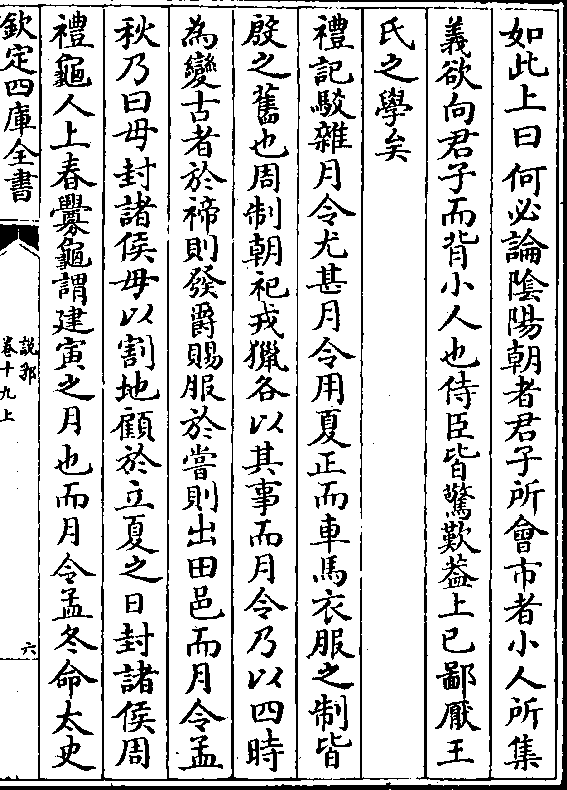 如此上曰何必論陰陽朝者君子所會市者小人所集
義欲向君子而背小人也侍臣皆驚歎葢上已鄙厭王
氏之學矣
禮記駮雜月令尤甚月令用夏正而車馬衣服之制皆
殷之舊也周制朝祀戎獵各以其事而月令乃以四時
為變古者於禘則發爵賜服於嘗則出田邑而月令孟
秋乃曰毋封諸侯毋以割地顧於立夏之日封諸侯周
禮龜人上春釁龜謂建寅之月也而月令孟冬命太史
欽定四庫全書
說郛
卷十九上
六